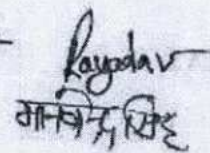 Rayadav
मानवेन्द्र सिंह